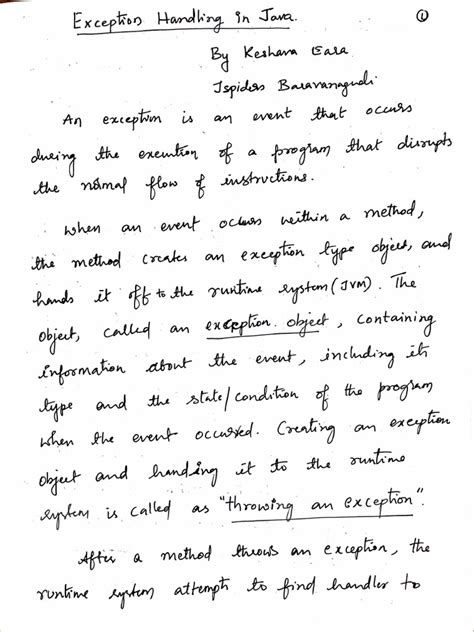 Exception Handling in Java. ①
By Keshava Gara
Jspiders Basavanagudi
An exception is an event that occurs
during the execution of a program that disrupts
the normal flow of instructions.
when an event occurs within a method,
the method creates an exception type object, and
hands it off to the runtime system (JVM). The
object, called an exception object, containing
information about the event, including its
type and the state/condition of the program
when the event occurred. Creating an exception
object and handing it to the runtime
system is called as "throwing an exception".
After a method throws an exception, the
runtime system attempts to find handler to